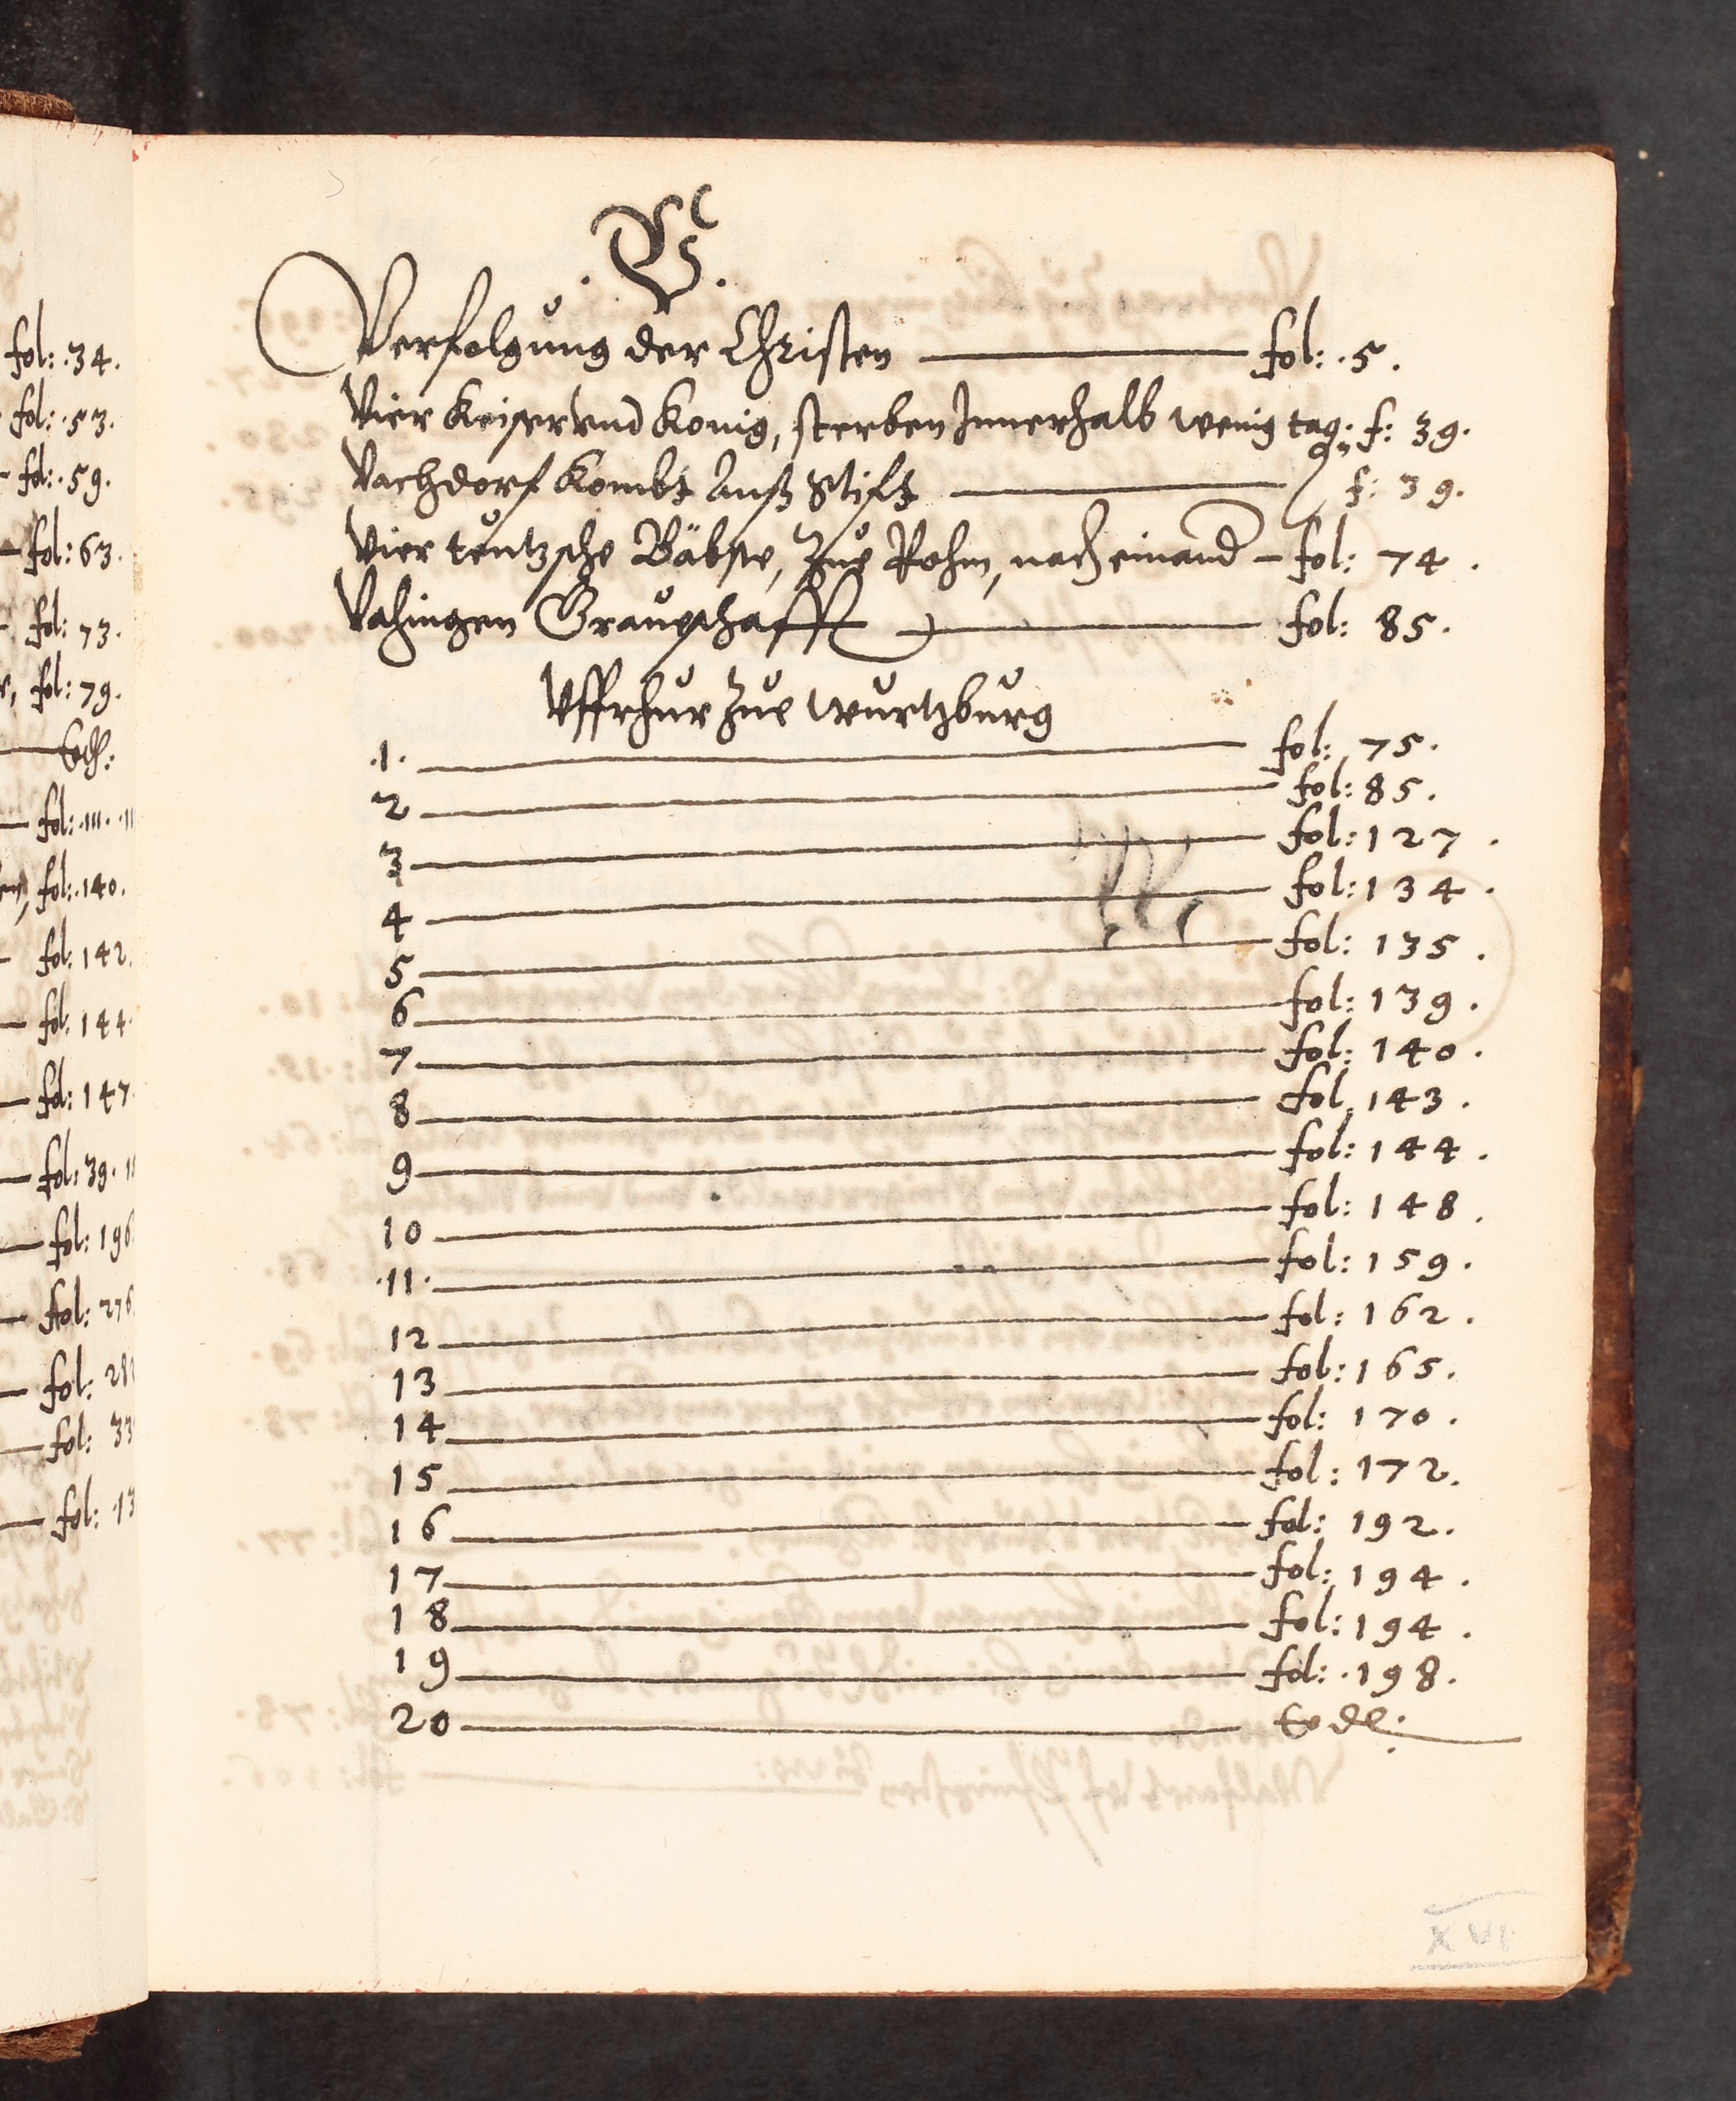 .V.
Verfolgung der Christen — fol: .5.
Vier Keiser vnd Konig, sterben Innerhalb wenig tag. f: 39.
Vachdorf Kombt Anß Stifft — f: 39.
Vier teutzsche Bäbste, Zue Rohm, nach einand — fol: 74.
Vahingen Graueschafft — fol: 85.
Vffrhur Zue Wurtzburg
.1. — fol: 75.
2 — fol: 85.
3 — fol: 127.
4 — fol: 134.
5 — fol: 135.
6 — fol: 139.
7 — fol: 140.
8 — fol. 143.
9 — fol: 144.
10 — fol: 148.
.11. — fol: 159.
12 — fol: 162.
13 — fol: 165.
14 — fol: 170.
15 — fol: 172.
16 — fol: 192.
17 — fol: 194.
18 — fol: 194.
19 — fol: .198.
20 — Eode:
XVI
fol: .34.
fol: .53.
fol: .59.
fol: 63.
fol: 73.
fol: 79.
fol: .140.
fol: 142.
fol: 144.
fol: 147.
fol: 39.
fol: 196
fol: 276